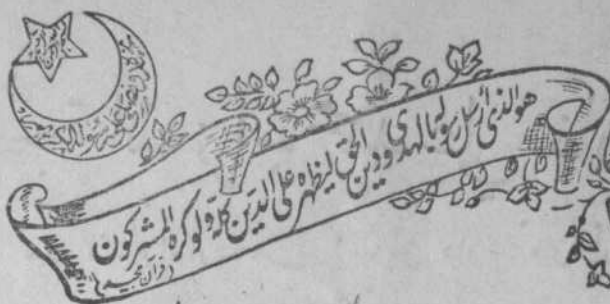 هوالذی ارسل رسوله بالهدی ودین الحق لیظهره علی الدین کله ولو کره المشرکون
(قرآن مجید)